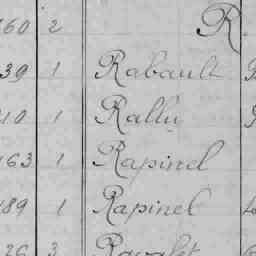 60 2 R.
39 1 Rabault
10 1 Rallu
163 1 Rapinel
189 1 Rapinel
26 3